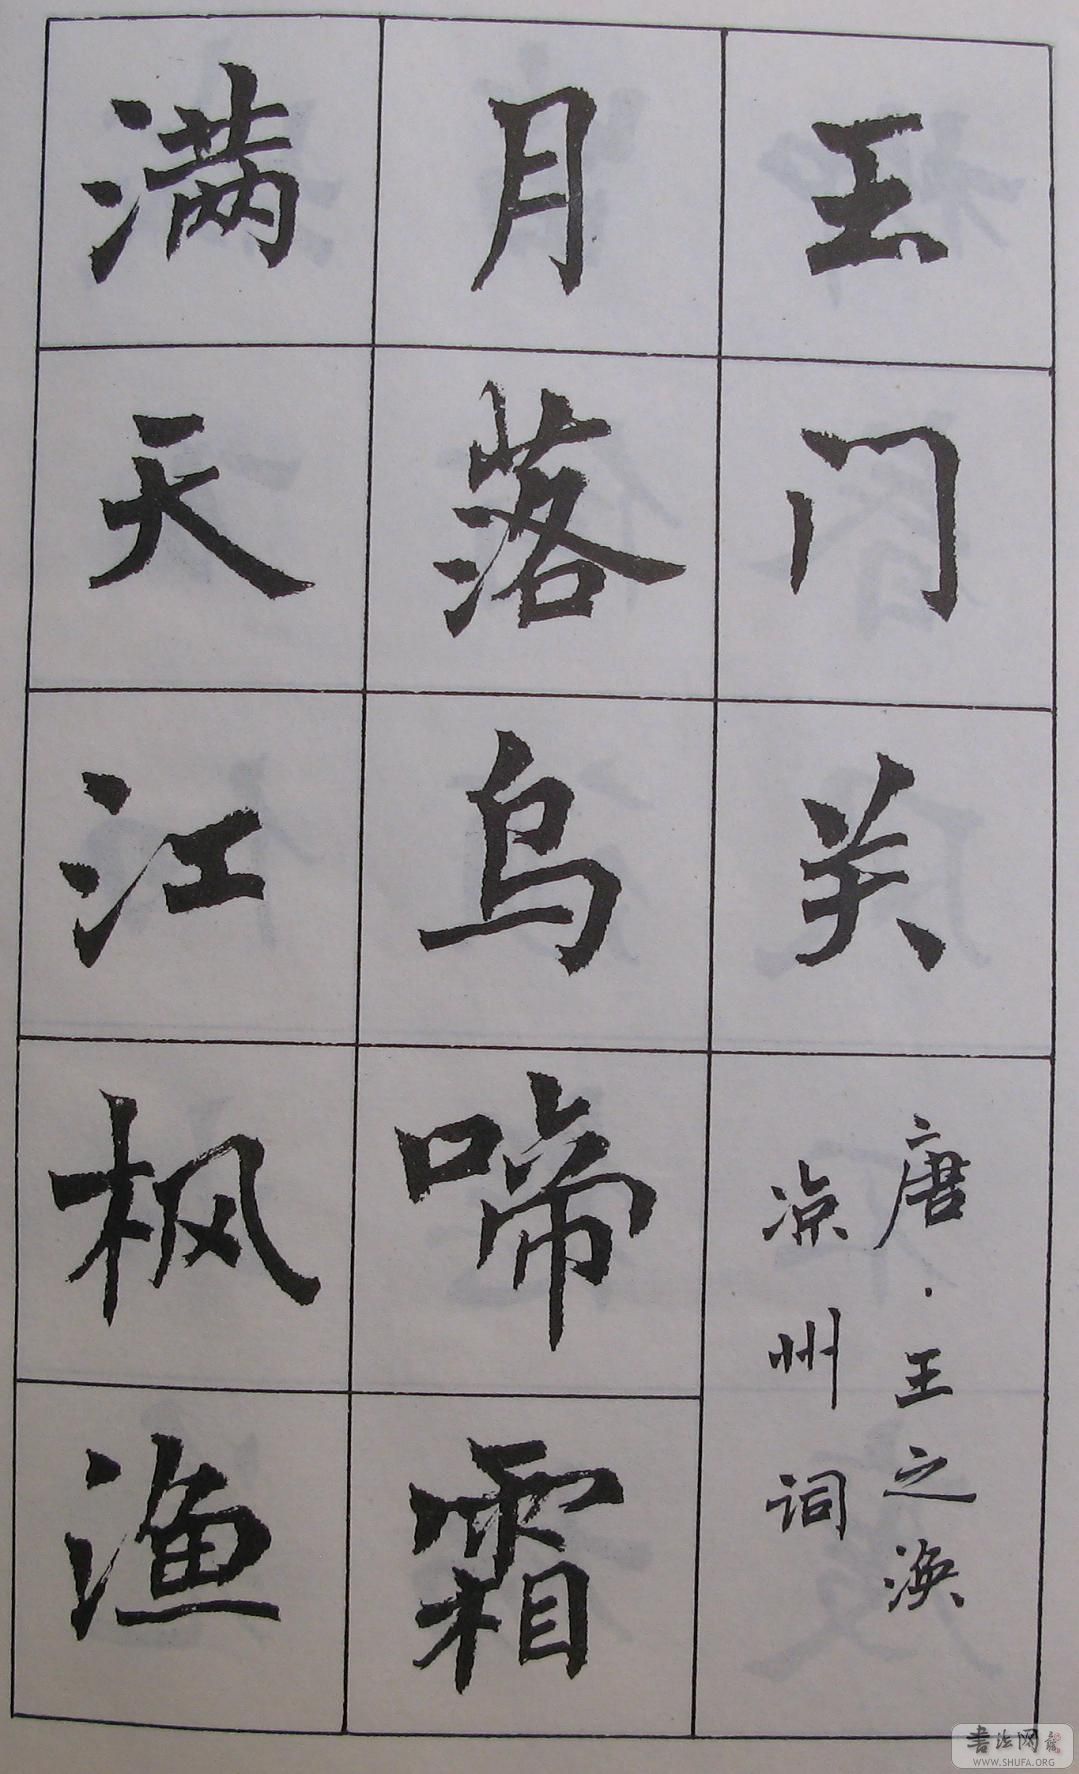 玉门关
唐·王之涣
凉州词
月落乌啼霜
满天江枫渔
書法网
WWW.SHUFA.ORG